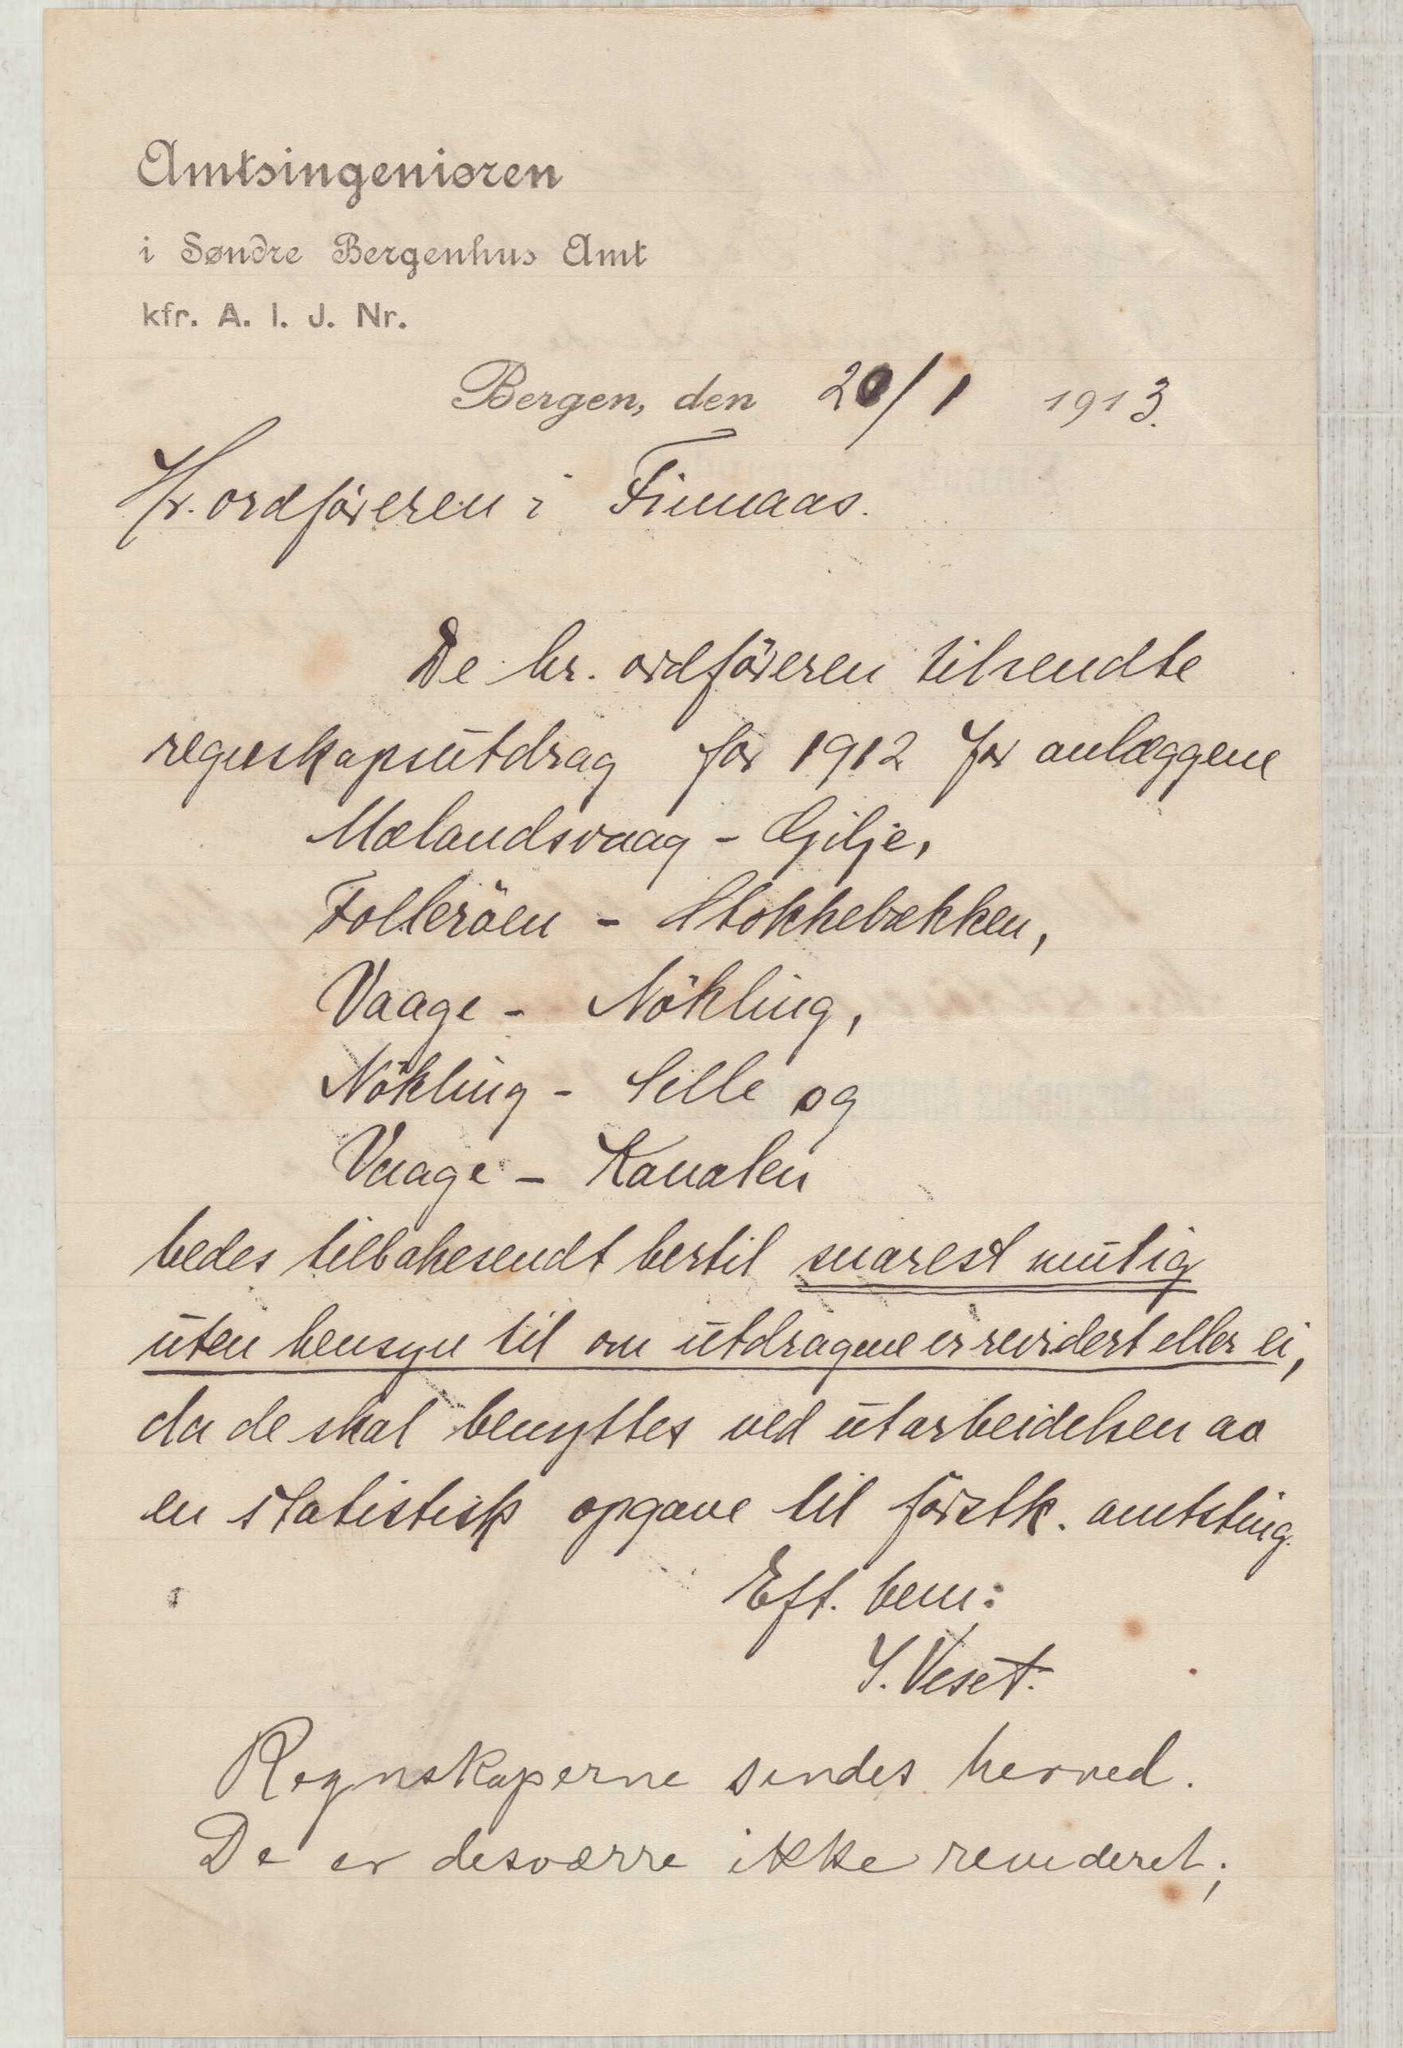 Amtsingeniøren
i Søndre Bergenhus Amt
kfr. A. I. J. Nr.
Bergen, den 20/1 1913.
Hr. ordföreren i Finnaas.
De hr. ordföreren tilsendte
regnskapsutdrag for 1912 for anlæggene
Mælandsvaag - Gilje,
Folleröen - Stokkebækken,
Vaage - Nökling,
Nökling - Sille og
Vaage - Kanalen
bedes tilbakesendt hertil snarest mulig
uten hensyn til om utdragene er revidert eller ei,
da de skal benyttes ved utarbeidelsen av
en statistisk opgave til förstk. amtsting.
Eft. bem:
S. Veset.
Regnskaperne sendes herved.
De er desværre ikke revideret;